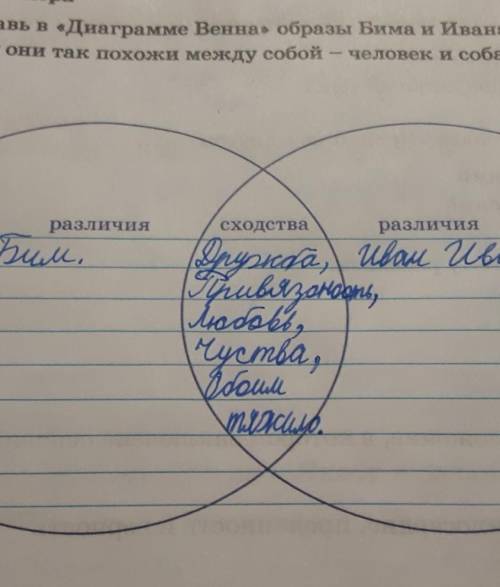 авь в «Диаграмме Венна» образы Бима и Ивана
они так похожи между собой – человек и соба
различия сходства различия
Бим. Дружба, Иван Ив
Привязоность,
Любовь,
Чуства,
Обоим
тяжило.